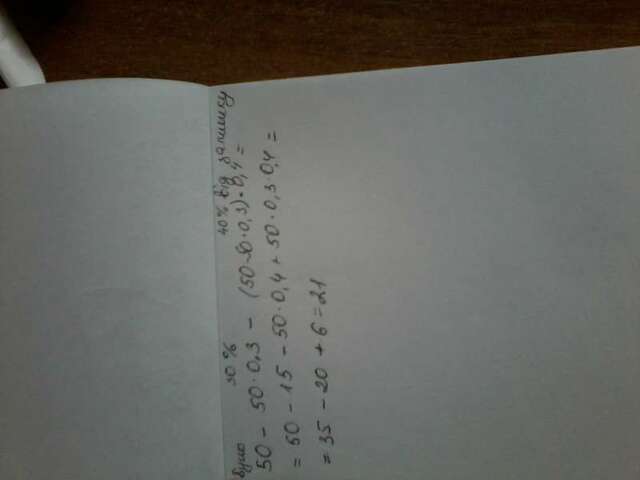 було 30% 40% від залишку
50 - 50·0,3 - (50-50·0,3)·0,4 =
= 50 - 15 - 50·0,4 + 50·0,3·0,4 =
= 35 - 20 + 6 = 21